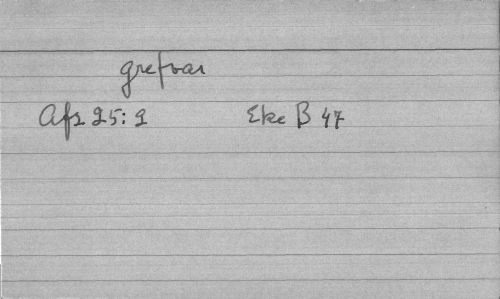 grefvar
Afr 25:2 Eke B 47